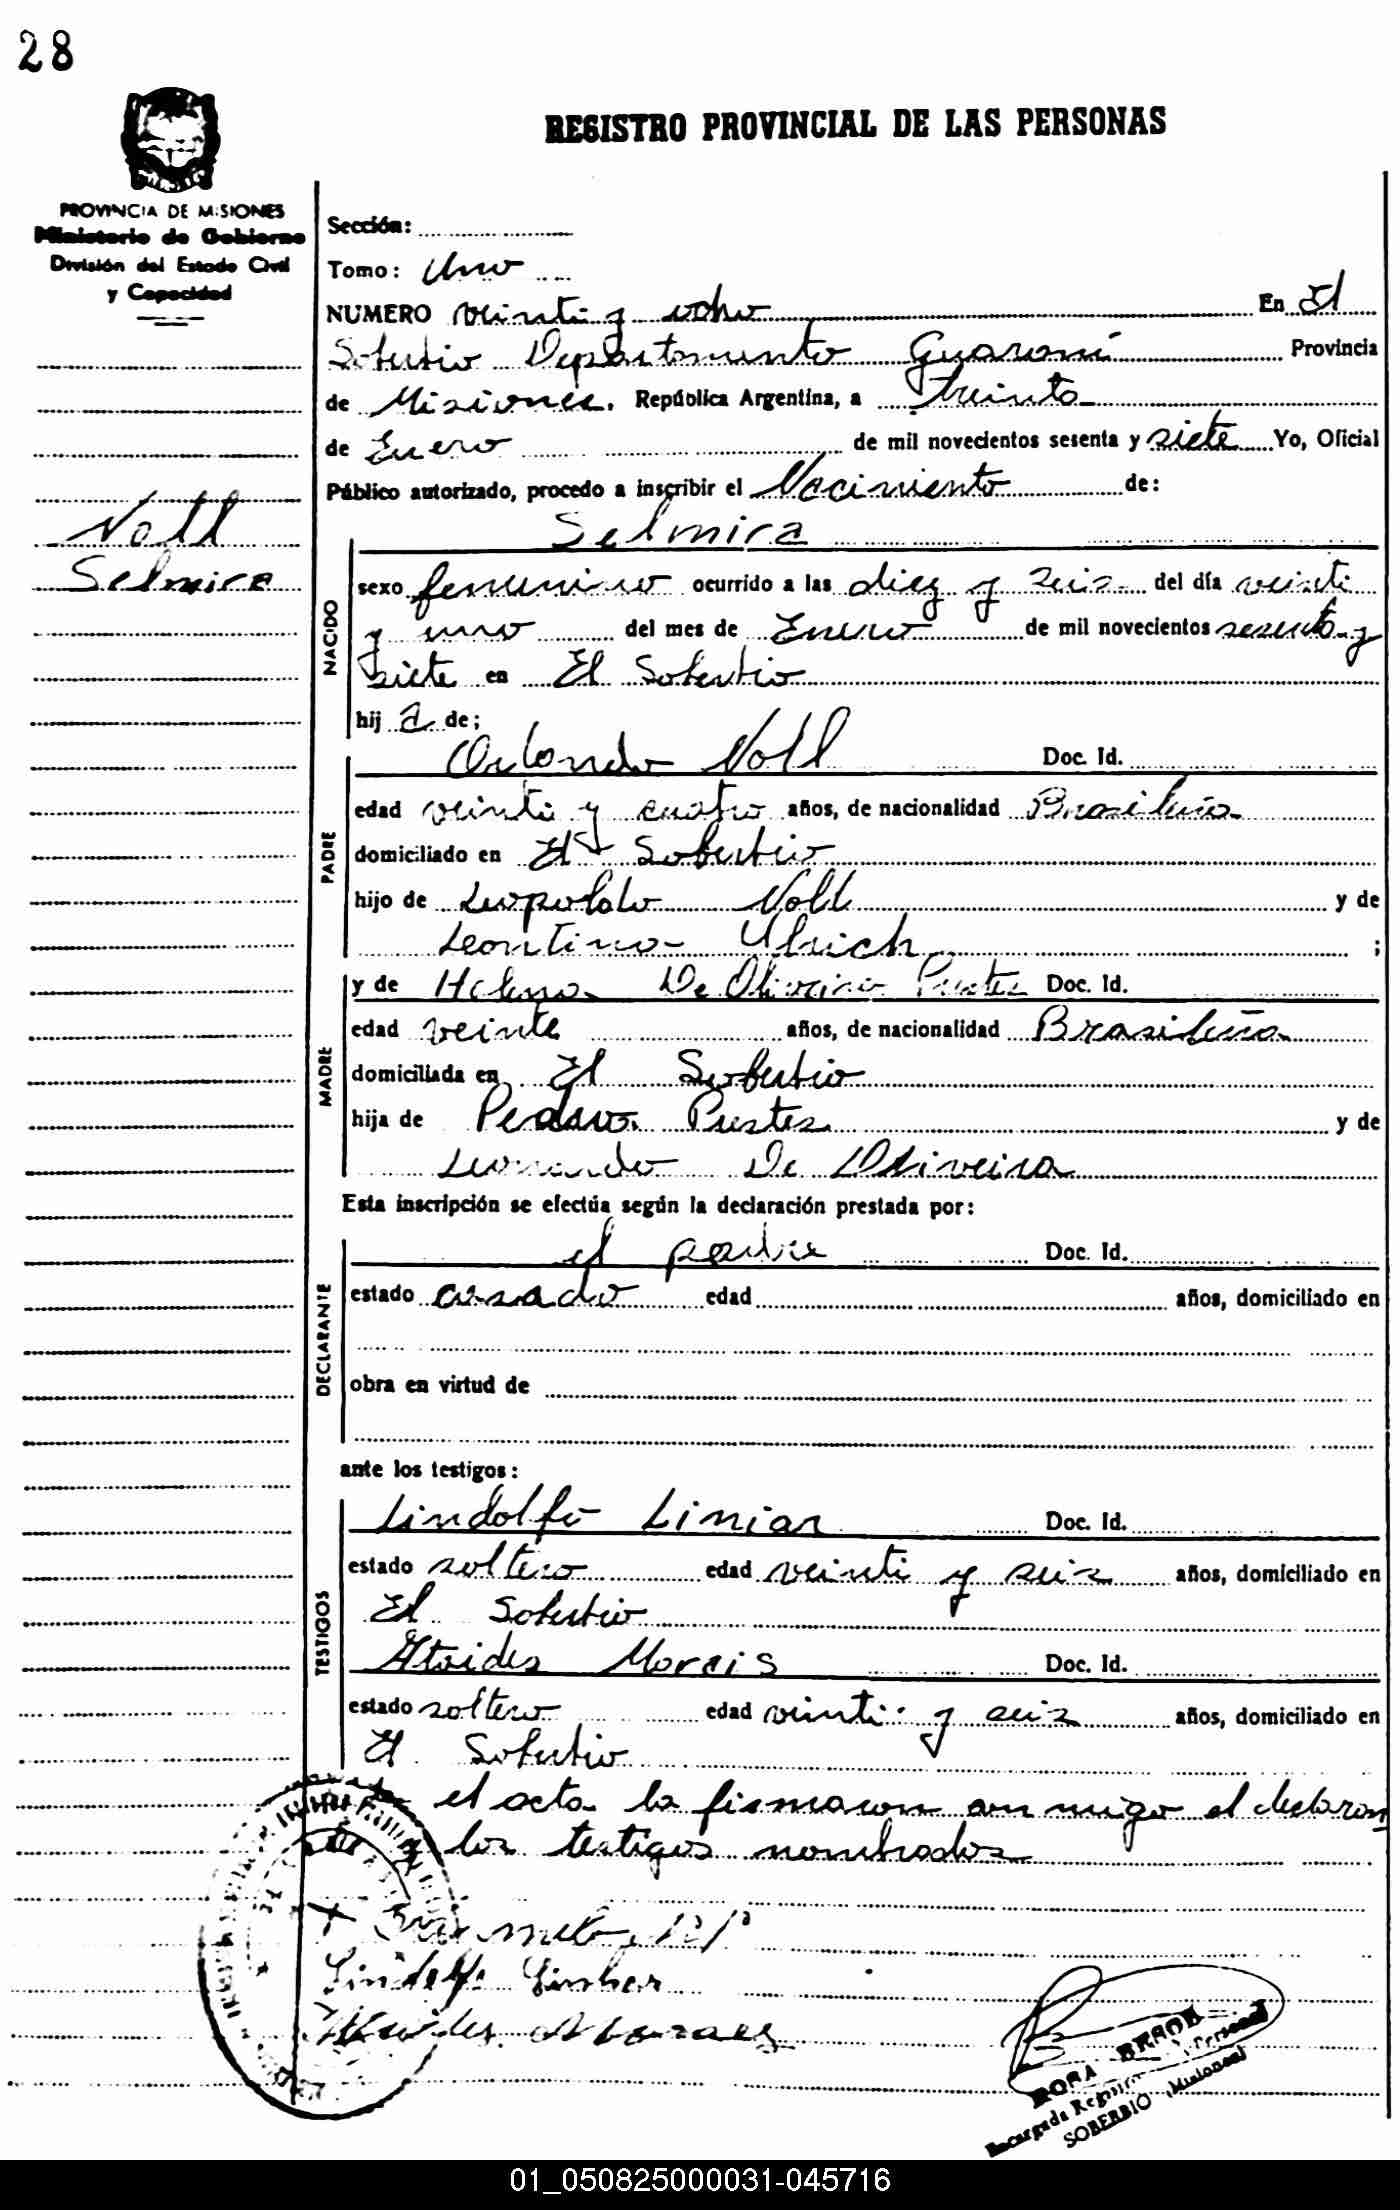 28
REGISTRO PROVINCIAL DE LAS PERSONAS
PROVINCIA DE MISIONES
Ministerio de Gobierno
División del Estado Civil
y Capacidad
Sección:
Tomo: Uno
NUMERO veinti y ocho En El
Soberbio Departamento Guaraní Provincia
de Misiones. República Argentina, a treinta
de Enero de mil novecientos sesenta y siete Yo, Oficial
Público autorizado, procedo a inscribir el Nacimiento de:
Noll
Selmira
Selmira
NACIDO
sexo femenino ocurrido a las diez y seis del día veinti
y uno del mes de Enero de mil novecientos sesenta y
siete en El Soberbio
hij a de;
PADRE
Orlando Noll Doc. Id.
edad veinti y cuatro años, de nacionalidad Brasileña
domiciliado en El Soberbio
hijo de Leopoldo Noll y de
Leontina Ulrich ;
MADRE
y de Helena De Oliveira Prestes Doc. Id.
edad veinte años, de nacionalidad Brasileña
domiciliada en El Soberbio
hija de Pedro Prestes y de
Leonarda De Oliveira
Esta inscripción se efectúa según la declaración prestada por:
DECLARANTE
el padre Doc. Id.
estado casado edad años, domiciliado en
obra en virtud de
ante los testigos:
TESTIGOS
Lindolfo Liniar Doc. Id.
estado soltero edad veinti y seis años, domiciliado en
El Soberbio
Morais Doc. Id.
estado soltero edad veinti y seis años, domiciliado en
El Soberbio
el acta la firmaron con migo el declaran
y los testigos nombrados
Lindolfo
Moraes
ROSA
Encargada
SOBERBIO (Misiones)
01_050825000031-045716